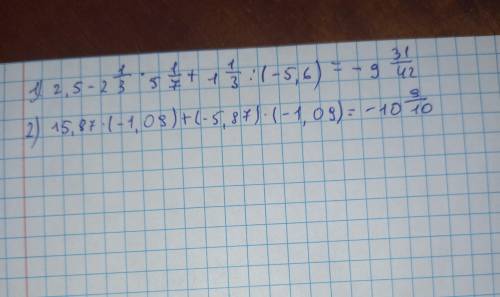 1) 2,5-2 1/3 · 5 1/7 + 1 1/3 : (-5,6) = -9 31/42
2) 15,87·(-1,09)+(-5,87)·(-1,09)=-10 9/10